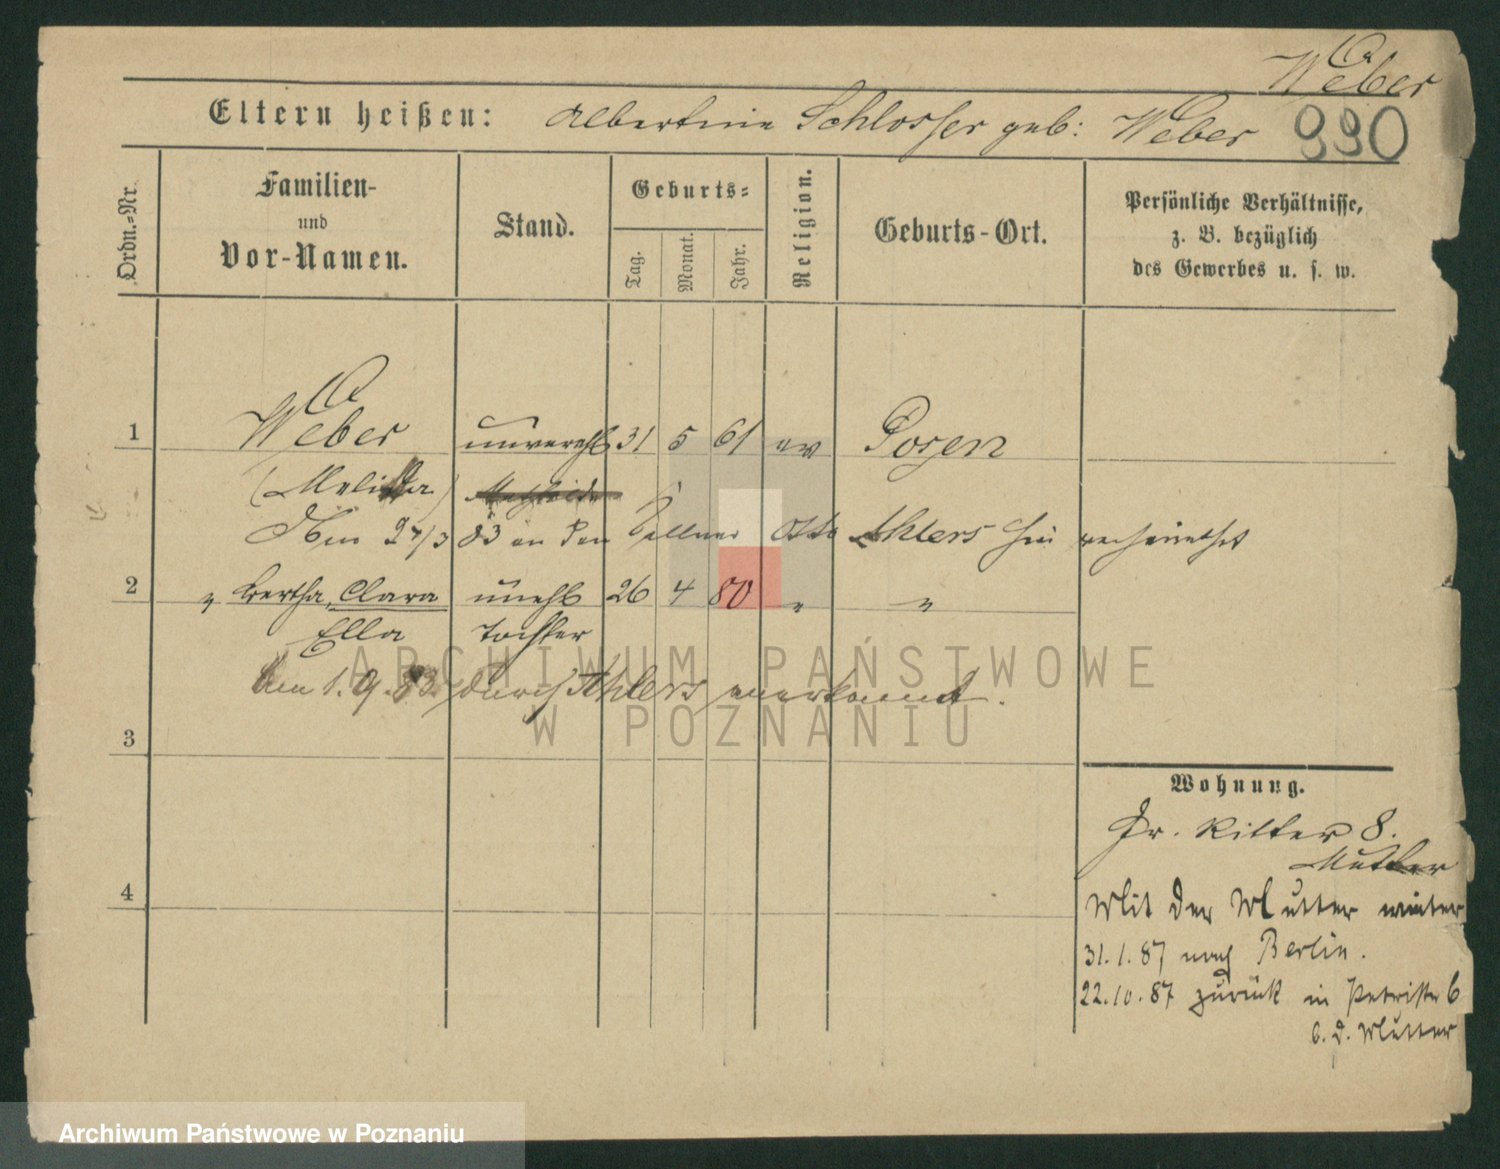 Weber
Eltern heißen: Albertine Schlosser geb: Weber 990
Ordn.-Nr.
Familien- und Vor-Namen.
Stand.
Geburts-
Tag. Monat. Jahr.
Religion.
Geburts-Ort.
Persönliche Verhältnisse,
z. B. bezüglich
des Gewerbes u. s. w.
1 Weber unverehl 31 5 61 ev Posen
Am 27/3 83 an den Kellner Otto Ahlers hier verheirathet
2 " Bertha, Clara unehl 26 4 80 " "
Ella Tochter
Am 1. 9. 83. durch Ahlers anerkannt.
3
4
Wohnung.
Gr. Ritter 8.
Mutter
Mit der Mutter
31.1.87 nach Berlin.
22.10.87 zurück in Petristr 6
b. d. Mutter
ARCHIWUM PAŃSTWOWE
W POZNANIU
Archiwum Państwowe w Poznaniu